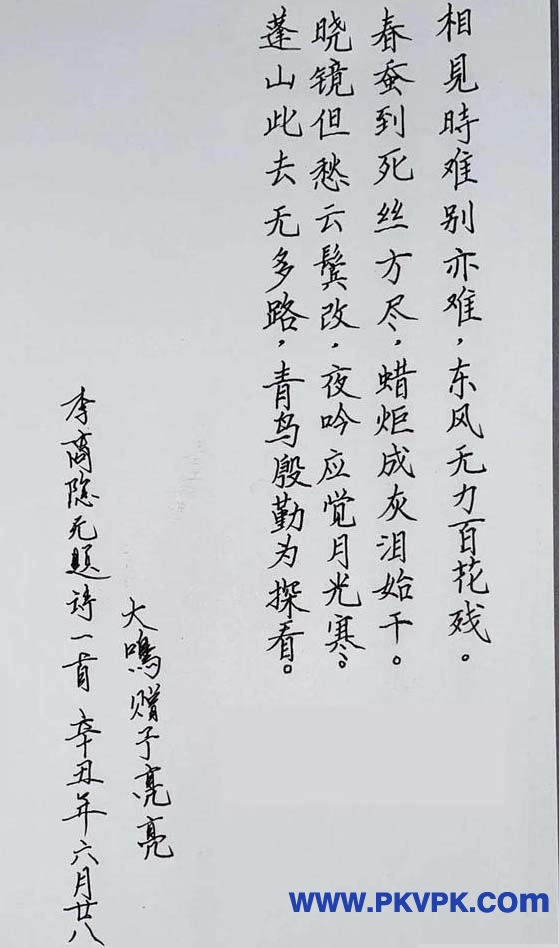 相見時难别亦难，东风无力百花残。
春蚕到死丝方尽，蜡炬成灰泪始干。
晓镜但愁云鬓改，夜吟应觉月光寒。
蓬山此去无多路，青鸟殷勤为探看。
大鸣赠予亮亮
李商隐无题诗一首 辛丑年六月廿八
www.PKVPK.com